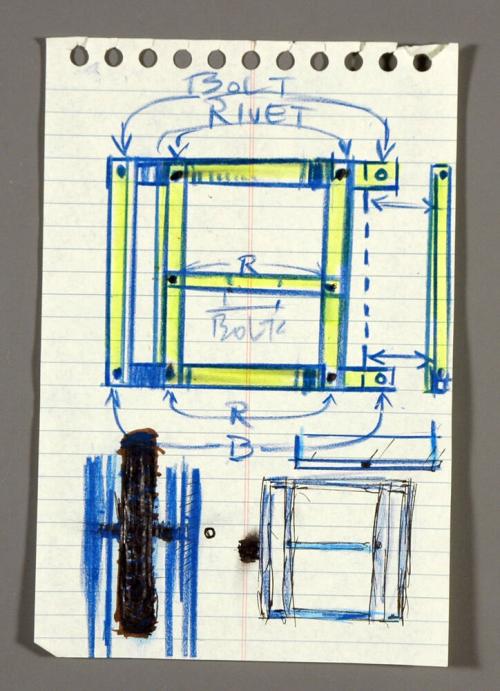 BOLT
RIVET
R
BOLT
R
B